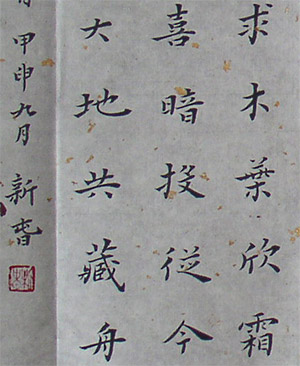 求木葉欣霜
喜暗投從今
大地共藏舟
甲申九月新